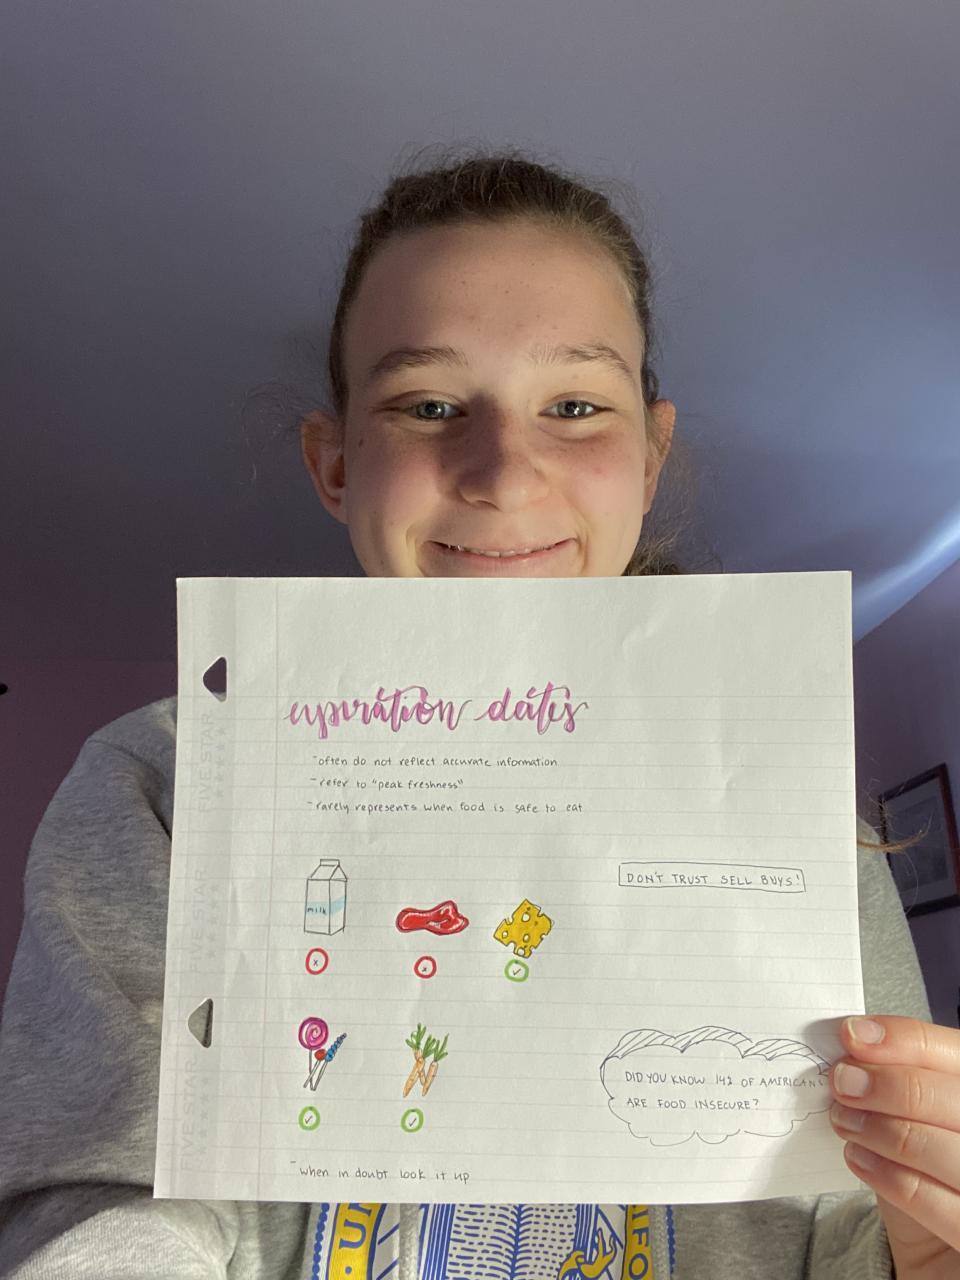 expiration dates
-often do not reflect accurate information
-refer to "peak freshness"
-rarely represents when food is safe to eat
milk
DON'T TRUST SELL BUYS!
DID YOU KNOW 14% OF AMERICANS
ARE FOOD INSECURE?
-when in doubt look it up
FIVE STAR
FIVE STAR
FIVE STAR
FIVE STAR
UN
IFO